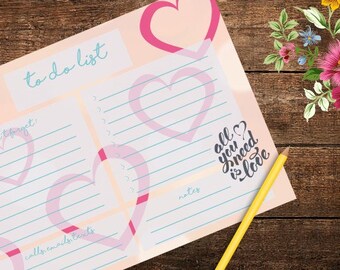 to do list
forget
all
you
need
is love
notes
calls emails texts